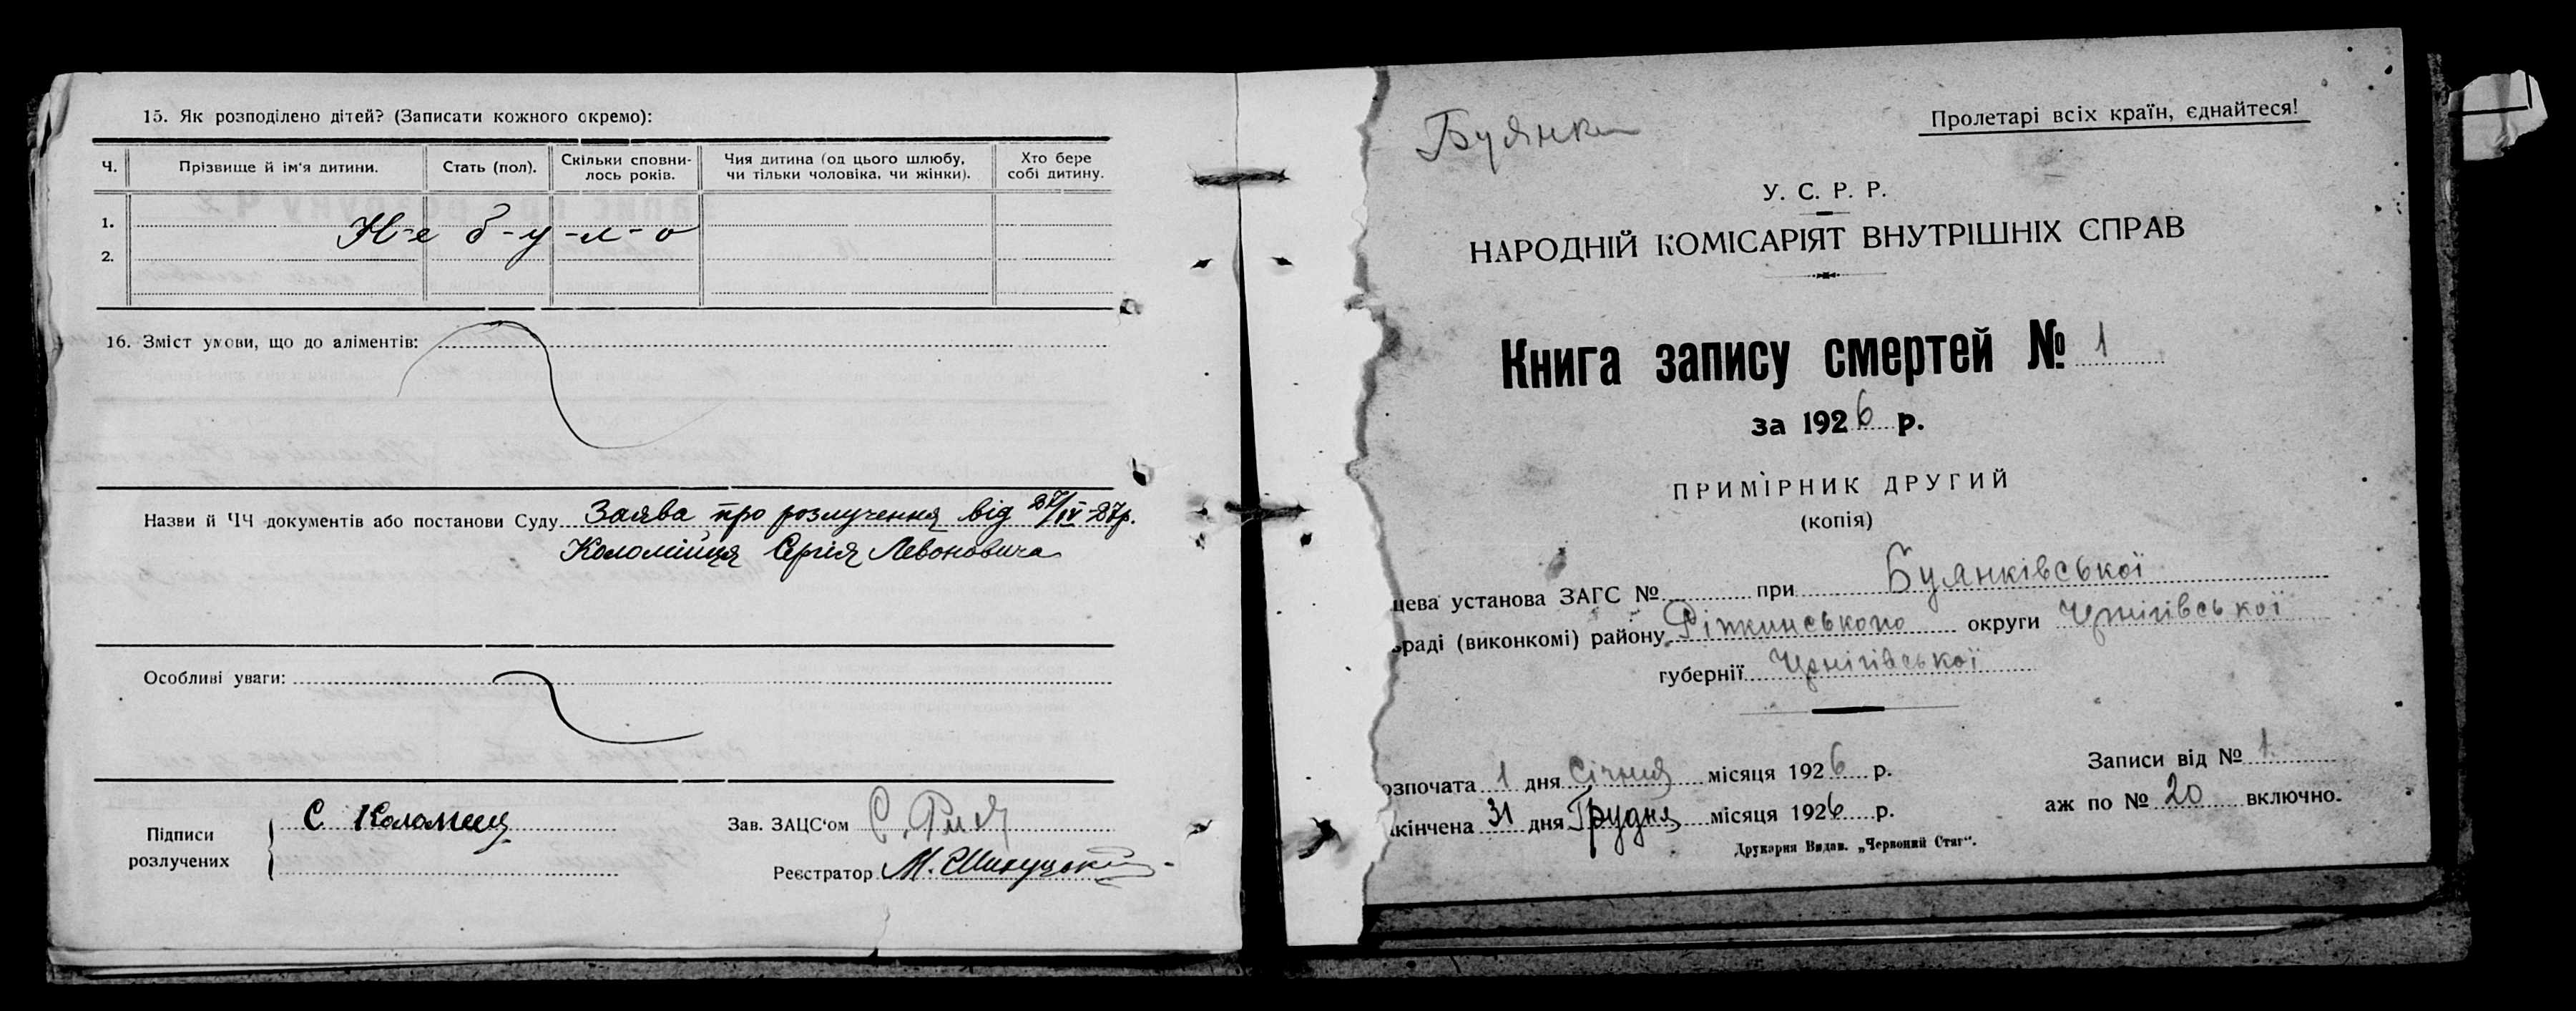 15. Як розподілено дітей? (Записати кожного окремо):
Ч. Прізвище й ім'я дитини. Стать (пол). Скільки сповни-лось років. Чия дитина (од цього шлюбу, чи тільки чоловіка, чи жінки). Хто бере собі дитину.
1.
Н-е б-у-л-о
2.
16. Зміст умови, що до аліментів:
Назви й ЧЧ документів або постанови Суду Заява про розлучення від 27/IV-27р.
Коломійця Сергія Левоновича
Особливі уваги:
Підписи розлучених С Коломиец
Зав. ЗАЦС'ом С.
Реєстратор М.
Буянки
Пролетарі всіх країн, єднайтеся!
У. С. Р. Р.
НАРОДНІЙ КОМІСАРІЯТ ВНУТРІШНІХ СПРАВ
Книга запису смертей № 1
за 1926 р.
ПРИМІРНИК ДРУГИЙ
(копія)
цева установа ЗАГС № при Буянківської
ьраді (виконкомі) району Ріпкинського округи Чернігівської
губернії Чернігівської
озпочата 1 дня Січня місяця 1926 р.
Записи від № 1
акінчена 31 дня Грудня місяця 1926 р.
аж по № 20 включно.
Друкарня Видав. „Червоний Стяг“.